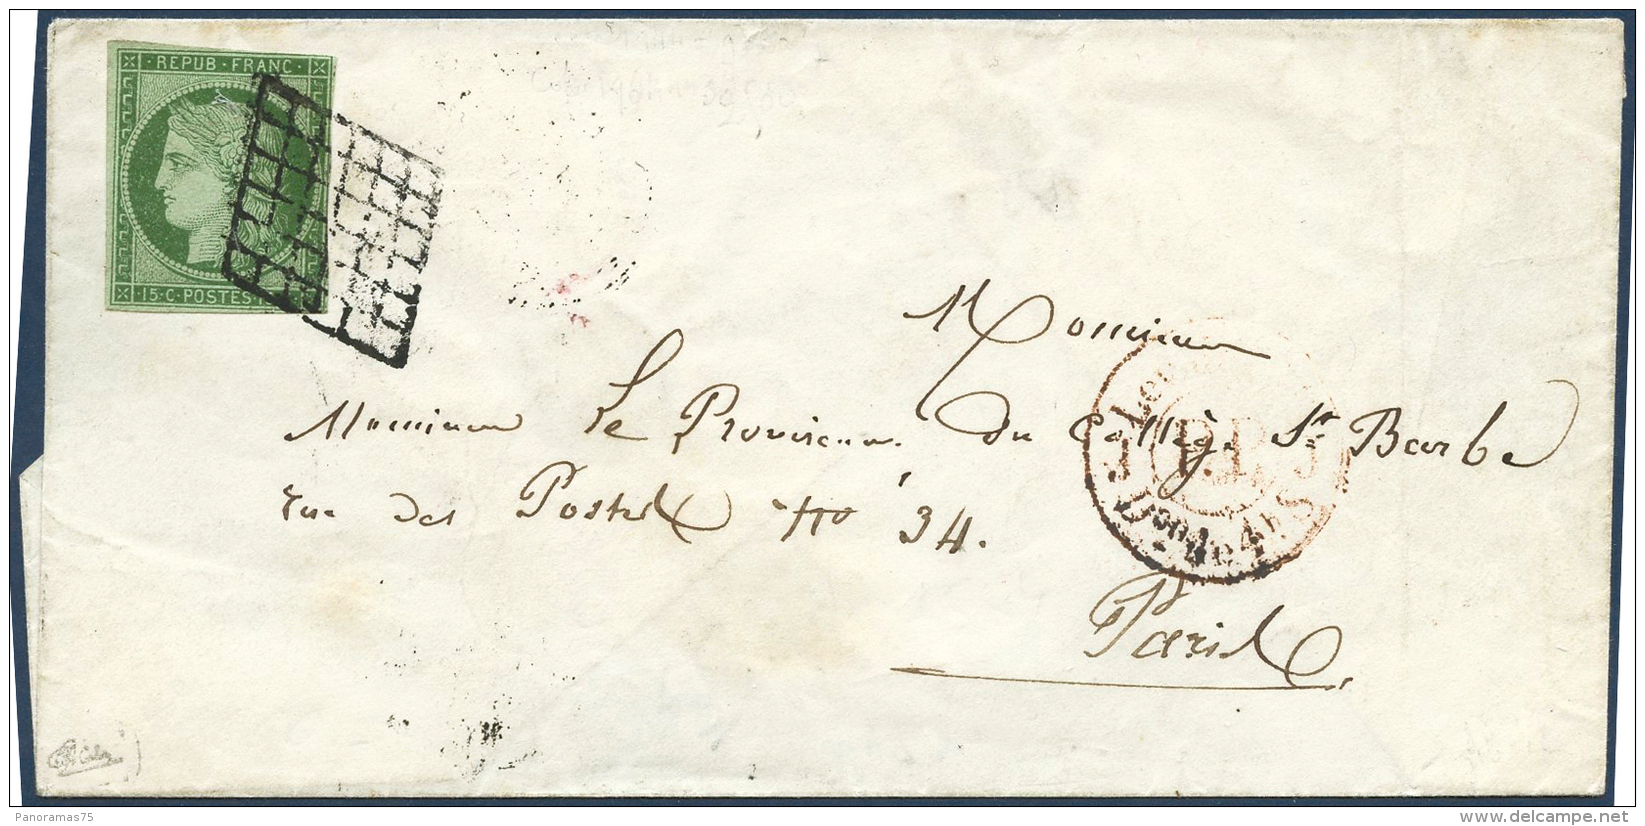 REPUB·FRANC·
15·C·POSTES·1
Monsieur
Monsieur Le Proviseur du Collège St Barbe
rue des Postes No 34.
Paris
P.P.
Panoramas75
delcampe.net